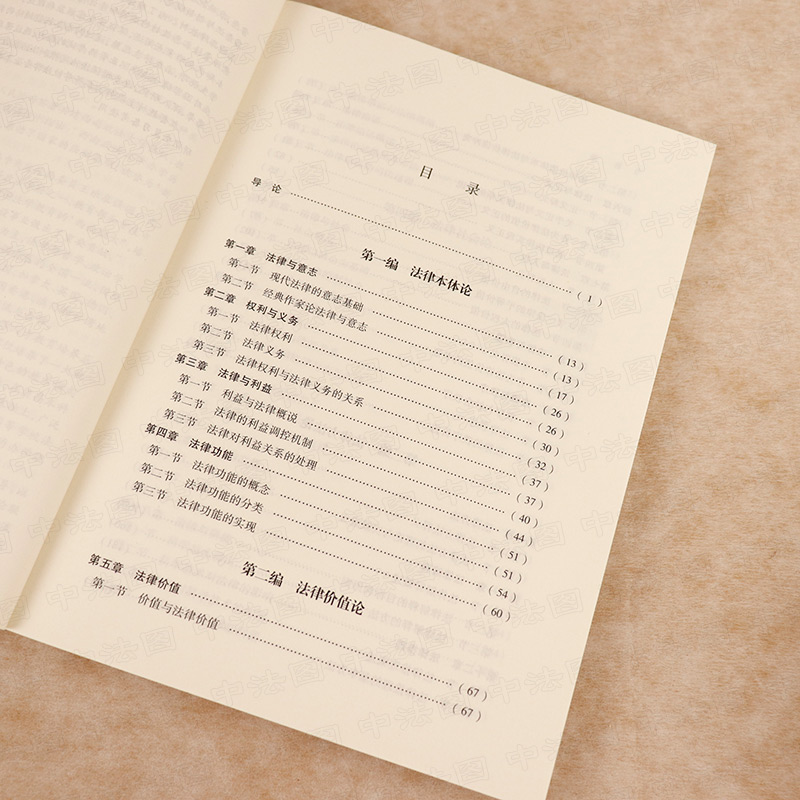 目 录
导 论 ……………… ( 1 )
第一编 法律本体论
第一章 法律与意志 ……………… ( 13 )
第一节 现代法律的意志基础 ……………… ( 13 )
第二节 经典作家论法律与意志 ……………… ( 17 )
第二章 权利与义务 ……………… ( 26 )
第一节 法律权利 ……………… ( 26 )
第二节 法律义务 ……………… ( 30 )
第三节 法律权利与法律义务的关系 ……………… ( 32 )
第三章 法律与利益 ……………… ( 37 )
第一节 利益与法律概说 ……………… ( 37 )
第二节 法律的利益调控机制 ……………… ( 40 )
第三节 法律对利益关系的处理 ……………… ( 44 )
第四章 法律功能 ……………… ( 51 )
第一节 法律功能的概念 ……………… ( 51 )
第二节 法律功能的分类 ……………… ( 54 )
第三节 法律功能的实现 ……………… ( 60 )
第二编 法律价值论
第五章 法律价值 ……………… ( 67 )
第一节 价值与法律价值 ……………… ( 67 )
中法图